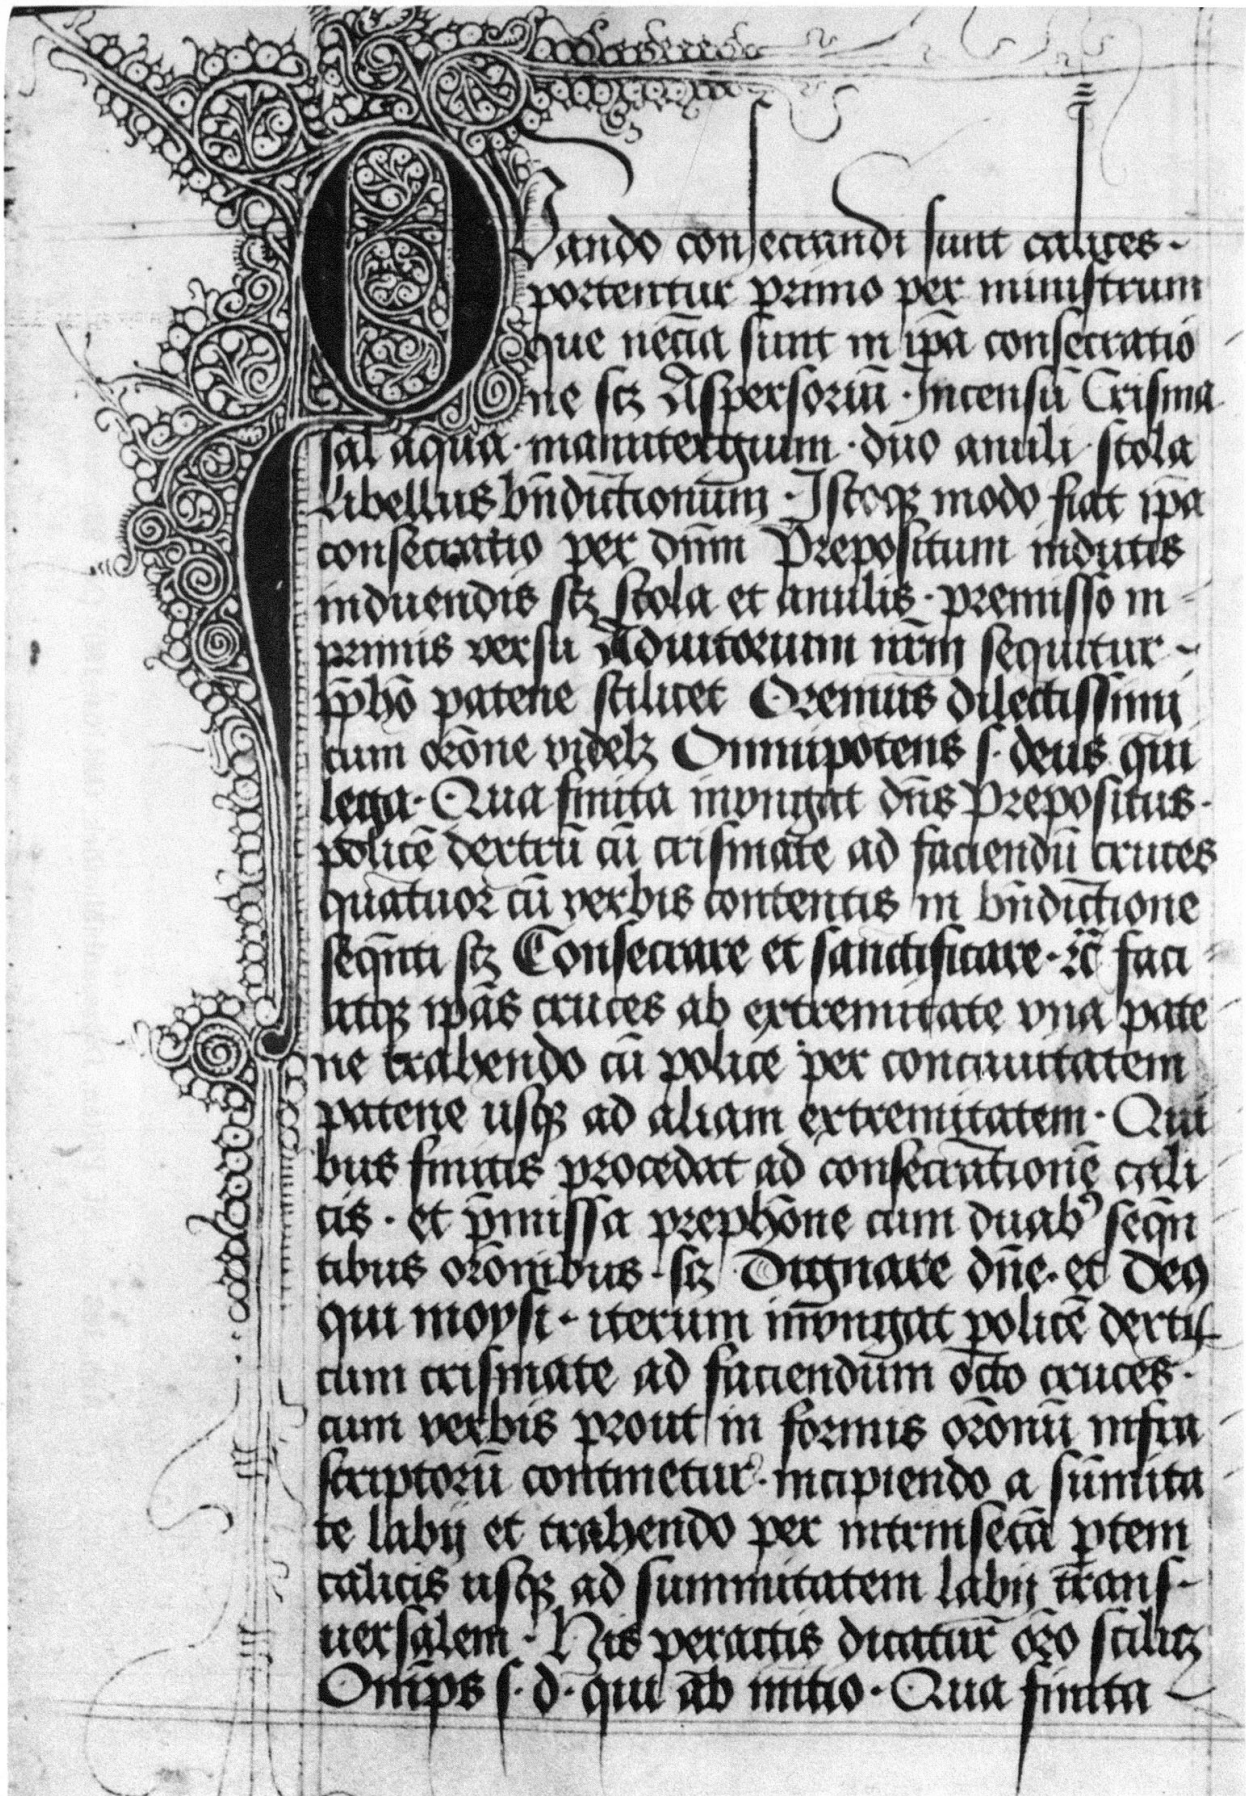 Quando consecrandi sunt calices·
portentur primo per ministrum
que nec̄ia sunt in ip̄a consecratio
ne scꝫ Aspersoriū · Incensū Crisma
sal aqua · manutergium · duo anuli · stola
libellus bn̄dictionum · Istoqꝫ modo fiat ip̄a
consecratio per dn̄m Prepositum indutis
induendis scꝫ stola et anulis · premisso in
primis versu Adiutorium nr̄m sequitur
p̄phō patene scilicet Oremus dilectissimi
cum orōne videlꝫ Omnipotens s · deus qui
lega · Qua finita inungat dn̄s Prepositus ·
policē dextrū cū crismate ad faciendū cruces
quatuor cū verbis contentis in bn̄dictione
seqn̄ti scꝫ Consecrare et sanctificare · ꝛc̄ faci
atqꝫ ip̄as cruces ab extremitate vna pate
ne trahendo cū police per concauitatem
patene usqꝫ ad aliam extremitatem · Qui
bus finitis procedat ad consecrationē cali
cis · et p̄missa prephōne cum duabꝰ seqn̄
tibus orōnibus · scꝫ Dignare dn̄e · et Deꝰ
qui moysi · iterum inungat policē dextrū
cum crismate ad faciendum octo cruces ·
cum verbis prout in formis orōnū infra
scriptorū continetur · incipiendo a sūmita
te labij et trahendo per intrinsecā ꝑtem
calicis usqꝫ ad summitatem labij trans
uersalem · His peractis dicatur or̄o scilicꝫ
Om̄ps s · d · qui ab initio · Qua finita